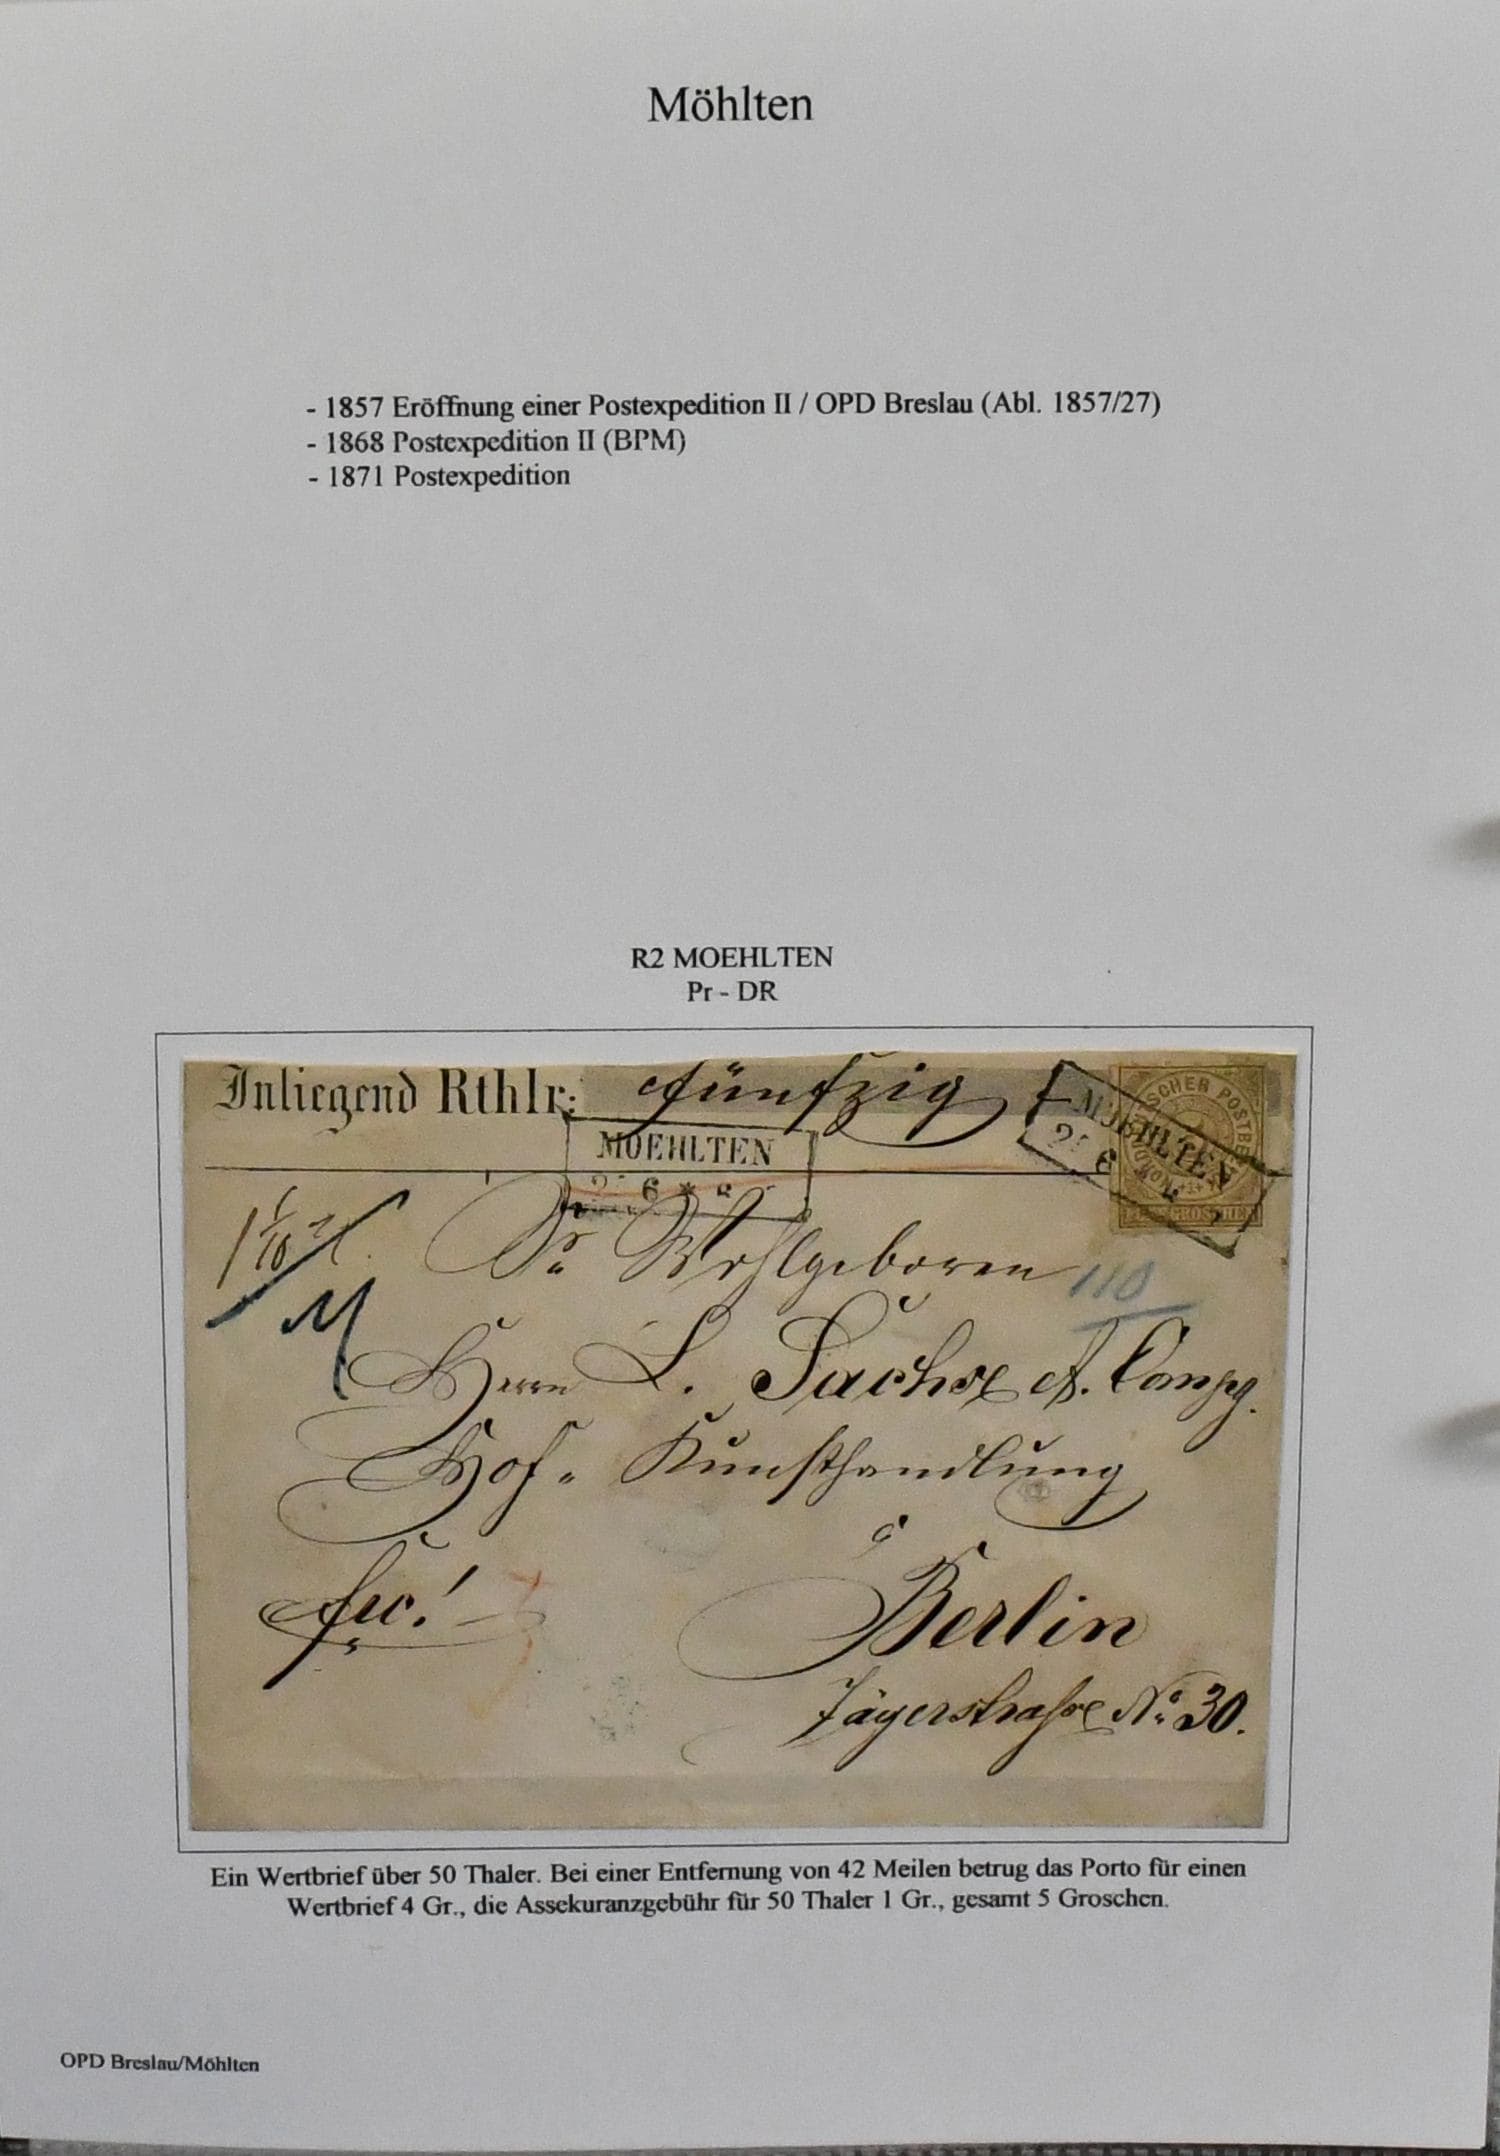 Möhlten
- 1857 Eröffnung einer Postexpedition II / OPD Breslau (Abl. 1857/27)
- 1868 Postexpedition II (BPM)
- 1871 Postexpedition
R2 MOEHLTEN
Pr - DR
Inliegend Rthlr: fünfzig
MOEHLTEN
6 *
MOEHLTEN
6
DEUTSCHER POSTBEZ
GROSCHEN
Sr. Wohlgeboren
110
M
Herrn L. Sachse & Comp.
Hof- Kunsthandlung
á
frc!
Berlin
Jägerstraße No 30.
Ein Wertbrief über 50 Thaler. Bei einer Entfernung von 42 Meilen betrug das Porto für einen
Wertbrief 4 Gr., die Assekuranzgebühr für 50 Thaler 1 Gr., gesamt 5 Groschen.
OPD Breslau/Möhlten